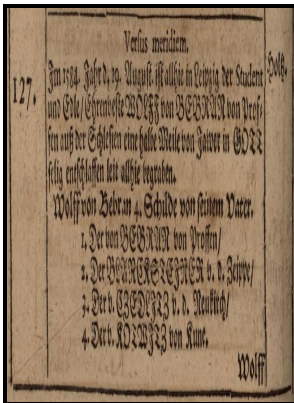 Versus meridiem.
127. Im 1584. Jahr d. 19. Augusti ist allhie in Leipzig der Student Holtz.
und Edle / Ehrenveste WOLFF von BEHRUN von Pros-
sen auß der Schlesien eine halbe Meile von Jawer in GOTT
selig entschlaffen leit allhie begraben.
Wolff von Behrun 4. Schilde von seinem Vater.
1. Der von BEHRUN von Prossen /
2. Der v. d. /
3. Der v. CZEDLITZ v. d. Neukirch /
4. Der v. KOTWITZ von Kune.
Wolff